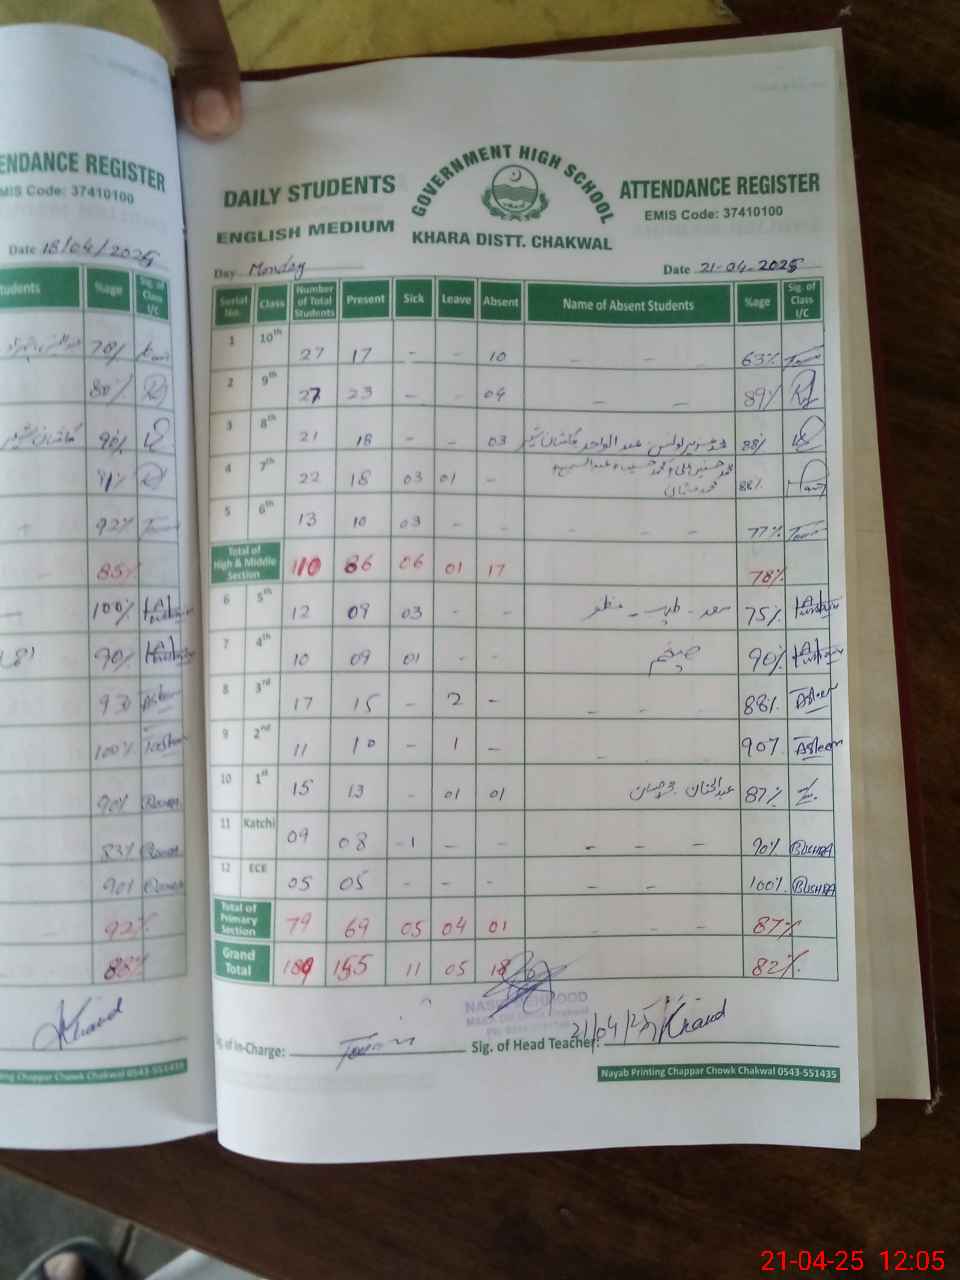 ENDANCE REGISTER
MIS Code: 37410100
Date 18/04/2025
tudents %age Sig. of Class I/C
78%
80%
90%
81%
92%
85%
100%
90%
93 Asleem
100%
90% Bushra
83% Bushra
90% Bushra
92%
88%
ng Chappar Chowk Chakwal 0543-551435
DAILY STUDENTS
ENGLISH MEDIUM
GOVERNMENT HIGH SCHOOL
KHARA DISTT. CHAKWAL
ATTENDANCE REGISTER
EMIS Code: 37410100
Day Monday
Date 21-04-2025
Serial No. Class Number of Total Students Present Sick Leave Absent Name of Absent Students %age Sig. of Class I/C
1 10th 27 17 - - 10 - - 63%
2 9th 27 23 - - 04 - - 89%
3 8th 21 18 - - 03 عبدالواحد 88%
4 7th 22 18 03 01 - 88%
5 6th 13 10 03 - - - - - 77%
Total of High & Middle Section 110 86 06 01 17 78%
6 5th 12 09 03 - - 75%
7 4th 10 09 01 - - 90%
8 3rd 17 15 - 2 - - - 88% Asleem
9 2nd 11 10 - 1 - - - - 90% Asleem
10 1st 15 13 - 01 01 87%
11 Katchi 09 08 -1 - - - - - 90% BUSHRA
12 ECE 05 05 - - - - - - 100% BUSHRA
Total of Primary Section 79 69 05 04 01 - - - 87%
Grand Total 189 155 11 05 18 82%
21/04/25
of In-Charge:
Sig. of Head Teacher:
Nayab Printing Chappar Chowk Chakwal 0543-551435
21-04-25 12:05